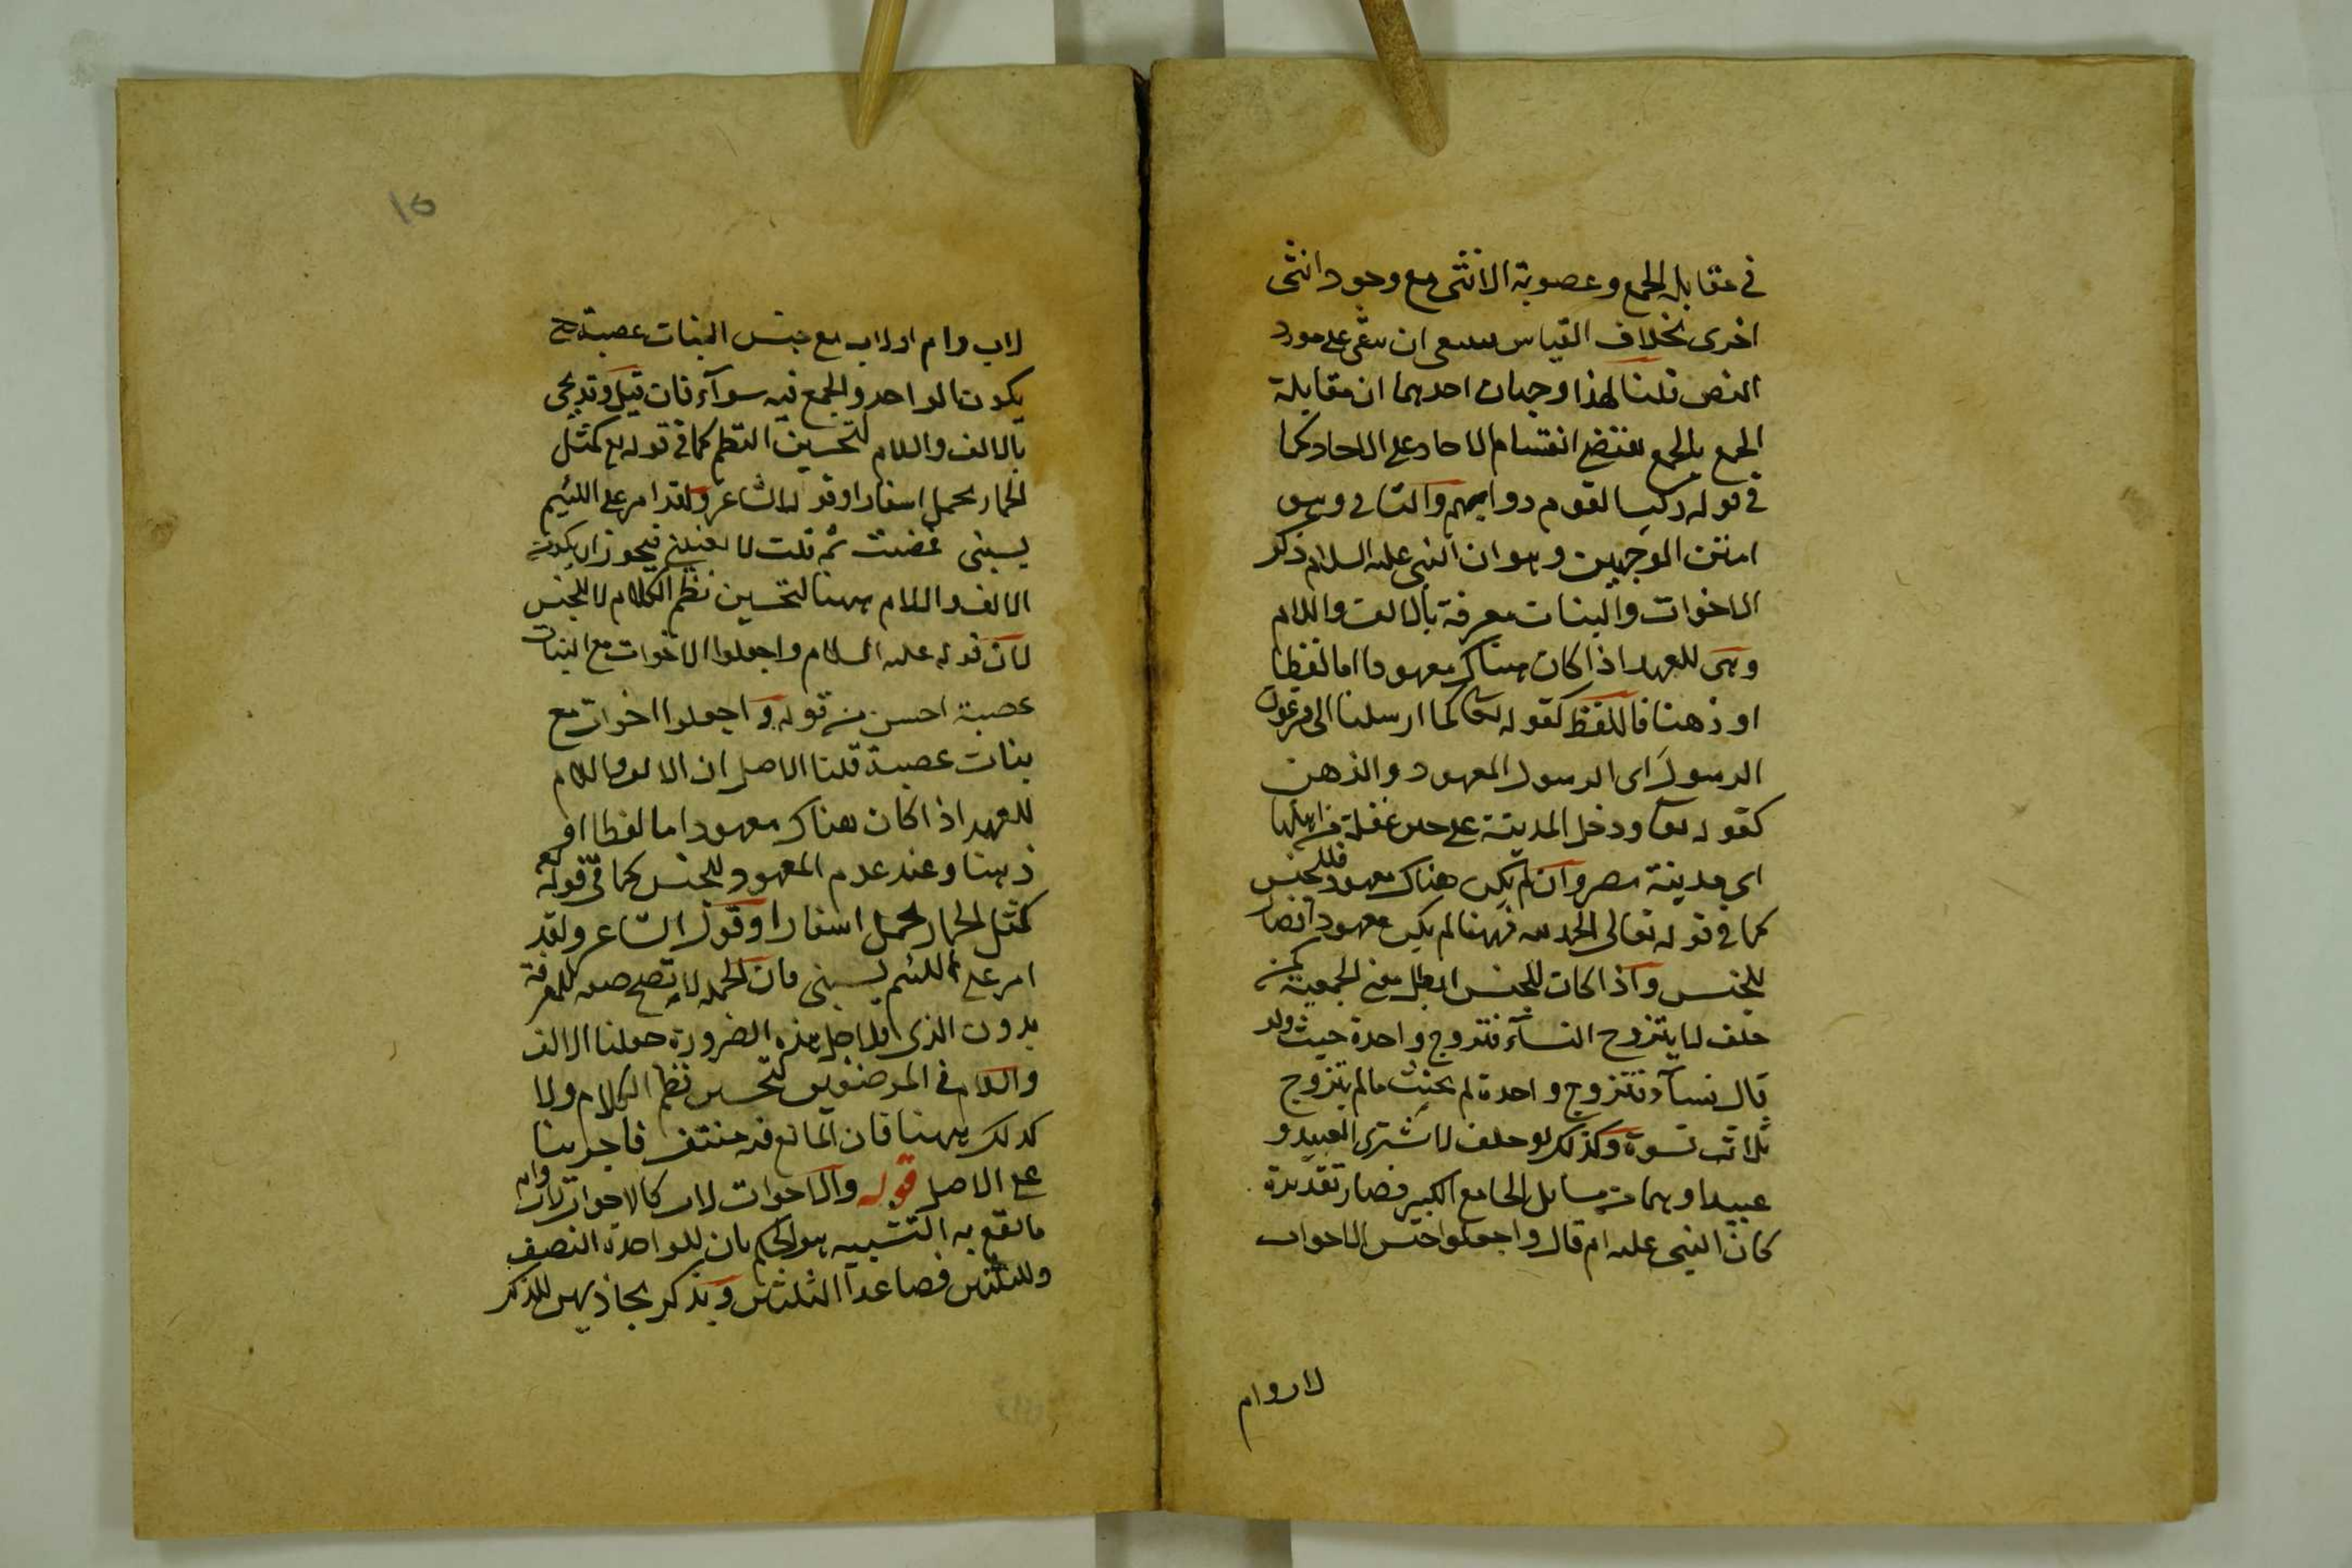 في مقابلة الجمع وعصوبة الانثى مع وجود انثى
اخرى بخلاف القياس ان على مورد
النص قلنا لهذا وجهان احدهما ان مقابلة
الجمع بالجمع يقتضى انقسام الاحاد على الاحاد كما
في قوله ركب القوم دوابهم والثانى وهو
امتن الموجهين وهو ان النبى عليه السلام ذكر
الاخوات والبنات معرفة بالالف واللام
وهى للعهد اذا كان هناك معهودا اما لفظا
او ذهنا فاللفظ كقوله تعا كما ارسلنا الى فرعون
الرسول اى الرسول المعهود والذهن
كقوله تعا ودخل المدينة على حين غفلة من اهلها
اى مدينة مصر وان لم يكن هناك معهود فللجنس
كما في قوله تعالى الحمد لله فههنا لم يكن معهود ايضا
للجنس واذا كان للجنس ابطل معنى الجمعية كمن
حلف لا يتزوج النساء فتزوج واحدة حيث ولو
قال نساء فتزوج واحدة لم يحنث ما لم يتزوج
ثلاث نسوة وكذلك لو حلف لا اشترى العبيد و
عبيدا وهما من مسايل الجامع الكبير فصار تقديره
كان النبى عليه ام قال واجعلوا جنس الاخوات
لاب وام
١٥
لاب وام او لاب مع جنس البنات عصبة ح
يكون الواحد والجمع فيه سوآء فان قيل وقد يجى
بالالف واللام لتحسين النظم كما في قوله تع كمثل
الحمار يحمل اسفارا وقول الشاعر ولقد امر على اللئيم
يسبنى فمضيت ثم قلت لا يعنينى فيجوز ان يكون
الالف واللام ههنا لتحسين نظم الكلام لا للجنس
لان قوله عليه السلام واجعلوا الاخوات مع البنات
عصبة احسن من قوله واجعلوا اخوات مع
بنات عصبة قلنا الاصل ان الالف واللام
للعهد اذا كان هناك معهود اما لفظا او
ذهنا وعند عدم المعهود للجنس كما في قوله تع
كمثل الحمار يحمل اسفارا وقول الشاعر ولقد
امر على اللئيم يسبنى فان الجملة لا تصح صفه للمعرفة
بدون الذى فلاجل هذه الضرورة جعلنا الالف
واللام في الموضعين لتحسين نظم الكلام ولا
كذلك ههنا فان المانع فيه منتف فاجرينا
على الاصل قوله والاخوات لاب كالاخوات لاب وام
ما يقع به التشبيه هو الحكم بان للواحدة النصف
وللثلثين فصاعدا الثلثين ويذكر للذكر